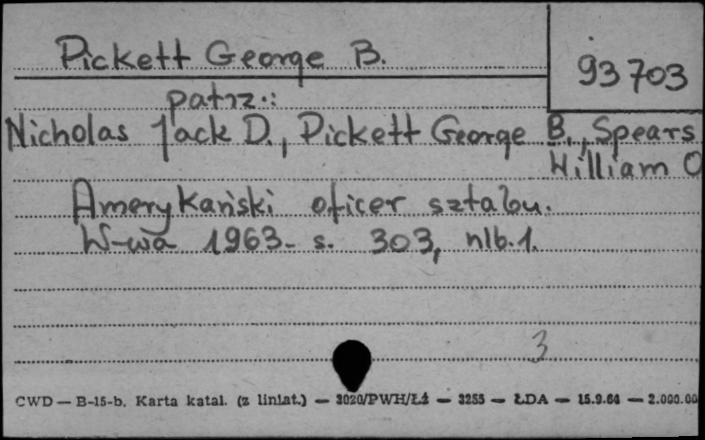 Pickett George B.
93703
patrz:
Nicholas Jack D., Pickett George B., Spears
William O
Amerykański oficer sztabu.
W-wa 1963. s. 303, nlb.1.
3
CWD — B-15-b. Karta katal. (z liniat.) — 3020/PWH/Łł — 3255 — ŁDA — 15.9.64 — 2.000.00